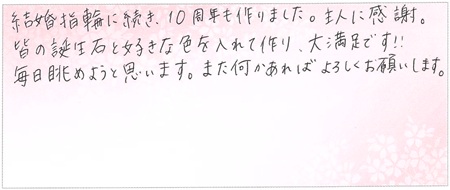 結婚指輪に続き、10周年も作りました。主人に感謝。
皆の誕生石と好きな色を入れて作り、大満足です!!
毎日眺めようと思います。また何かあればよろしくお願いします。